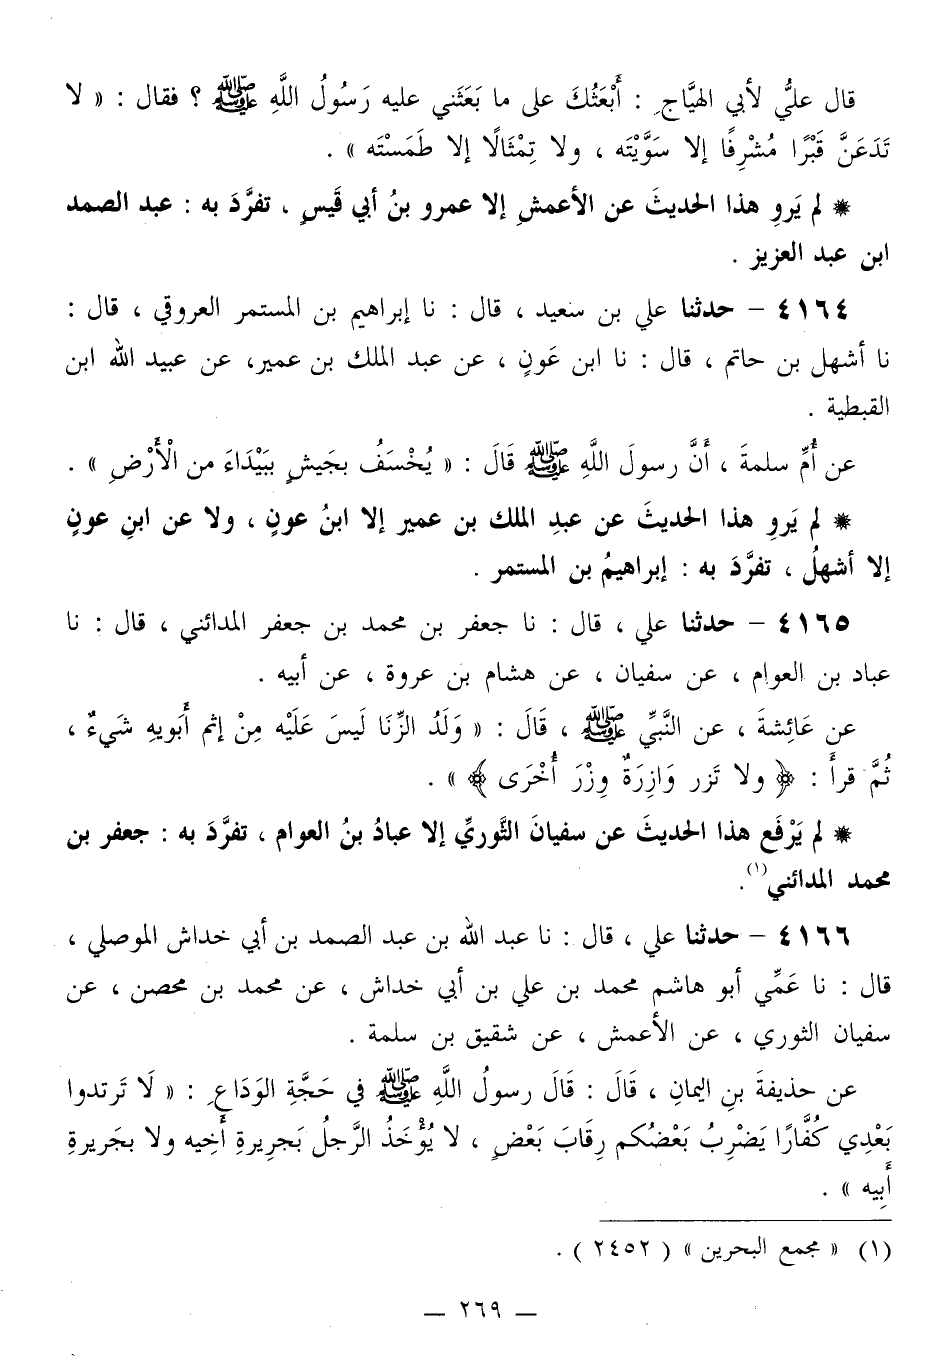 قال عليٌّ لأبي الهيَّاجِ : أَبْعَثُكَ على ما بَعَثَني عليه رَسُولُ اللَّهِ ﷺ ؟ فقال : « لا
تَدَعَنَّ قَبْرًا مُشْرِفًا إلا سَوَّيْتَه ، ولا تِمْثَالًا إلا طَمَسْتَه » .
* لم يَروِ هذا الحديثَ عن الأعمشِ إلا عمرو بنُ أبي قَيسٍ ، تفرَّدَ به : عبد الصمد
ابن عبد العزيز .
٤١٦٤ – حدثنا علي بن سعيد ، قال : نا إبراهيم بن المستمر العروقي ، قال :
نا أشهل بن حاتم ، قال : نا ابن عَونٍ ، عن عبد الملك بن عمير، عن عبيد الله ابن
القبطية .
عن أُمِّ سلمةَ ، أَنَّ رسولَ اللَّهِ ﷺ قَالَ : « يُخْسَفُ بجَيشٍ ببَيْدَاءَ من الْأَرْضِ » .
* لم يَروِ هذا الحديثَ عن عبدِ الملك بن عمير إلا ابنُ عونٍ ، ولا عن ابنِ عونٍ
إلا أشهلُ ، تفرَّدَ به : إبراهيمُ بن المستمر .
٤١٦٥ – حدثنا علي ، قال : نا جعفر بن محمد بن جعفر المدائني ، قال : نا
عباد بن العوام ، عن سفيان ، عن هشام بن عروة ، عن أبيه .
عن عَائِشةَ ، عن النَّبيِّ ﷺ ، قَالَ : « وَلَدُ الزِّنَا لَيسَ عَلَيْه مِنْ إثم أَبويهِ شَيءٌ ،
ثُمَّ قرأَ : ﴿ ولا تَزر وَازِرَةٌ وِزْرَ أُخْرَى ﴾ » .
* لم يَرْفَع هذا الحديثَ عن سفيانَ الثَّوريِّ إلا عبادُ بنُ العوام ، تفرَّدَ به : جعفر بن
محمد المدائني(١).
٤١٦٦ – حدثنا علي ، قال : نا عبد الله بن عبد الصمد بن أبي خداش الموصلي ،
قال : نا عَمِّي أبو هاشم محمد بن علي بن أبي خداش ، عن محمد بن محصن ، عن
سفيان الثوري ، عن الأعمش ، عن شقيق بن سلمة .
عن حذيفةَ بنِ اليمانِ ، قَالَ : قَالَ رسولُ اللَّهِ ﷺ في حَجَّةِ الوَدَاعِ : « لَا تَرتدوا
بَعْدِي كُفَّارًا يَضْرِبُ بَعْضُكم رِقَابَ بَعْضٍ ، لا يُؤْخَذُ الرَّجلُ بَجرِيرةِ أَخِيه ولا بجَريرةِ
أَبِيه » .
(١) « مجمع البحرين » ( ٢٤٥٢ ) .
— ٢٦٩ —